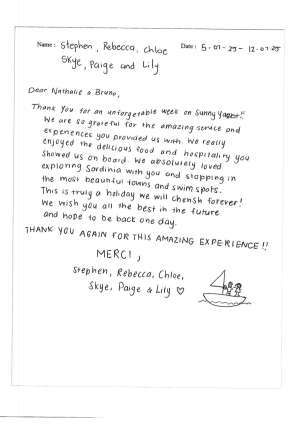 Name: Stephen, Rebecca, Chloe
Skye, Paige and Lily
Date: 5-07-25 - 12-07-25
Dear Nathalie & Bruno,
Thank you for an unforgetable week on Sunny
We are so grateful for the amazing service and
experiences you provided us with. We really
enjoyed the delicious food and hospitality you
showed us on board. We absolutely loved
exploring Sardinia with you and stopping in
the most beautiful towns and swim spots.
This is truly a holiday we will cherish forever!
We wish you all the best in the future
and hope to be back one day.
THANK YOU AGAIN FOR THIS AMAZING EXPERIENCE!!
MERCI,
Stephen, Rebecca, Chloe,
Skye, Paige & Lily ♡